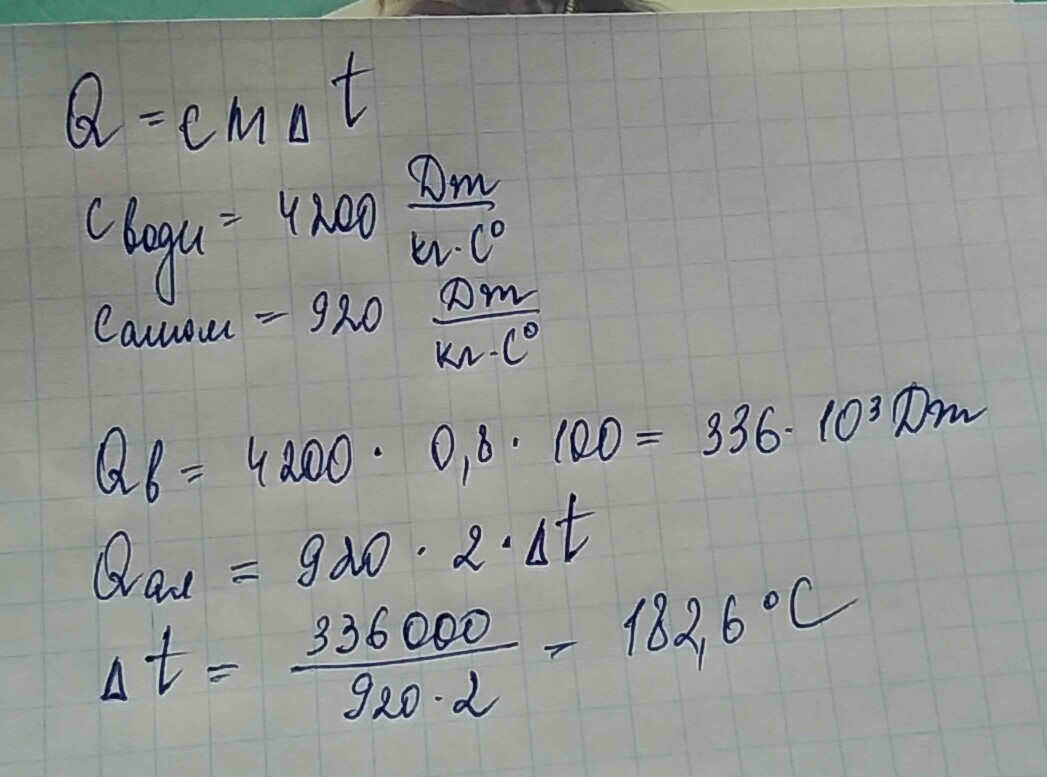 Q = cm Δt
c води = 4200 Дж/кг·C°
c алюм = 920 Дж/кг·C°
Qв = 4200 · 0,8 · 100 = 336 · 10³ Дж
Qал = 920 · 2 · Δt
Δt = 336000/920·2 = 182,6 °C